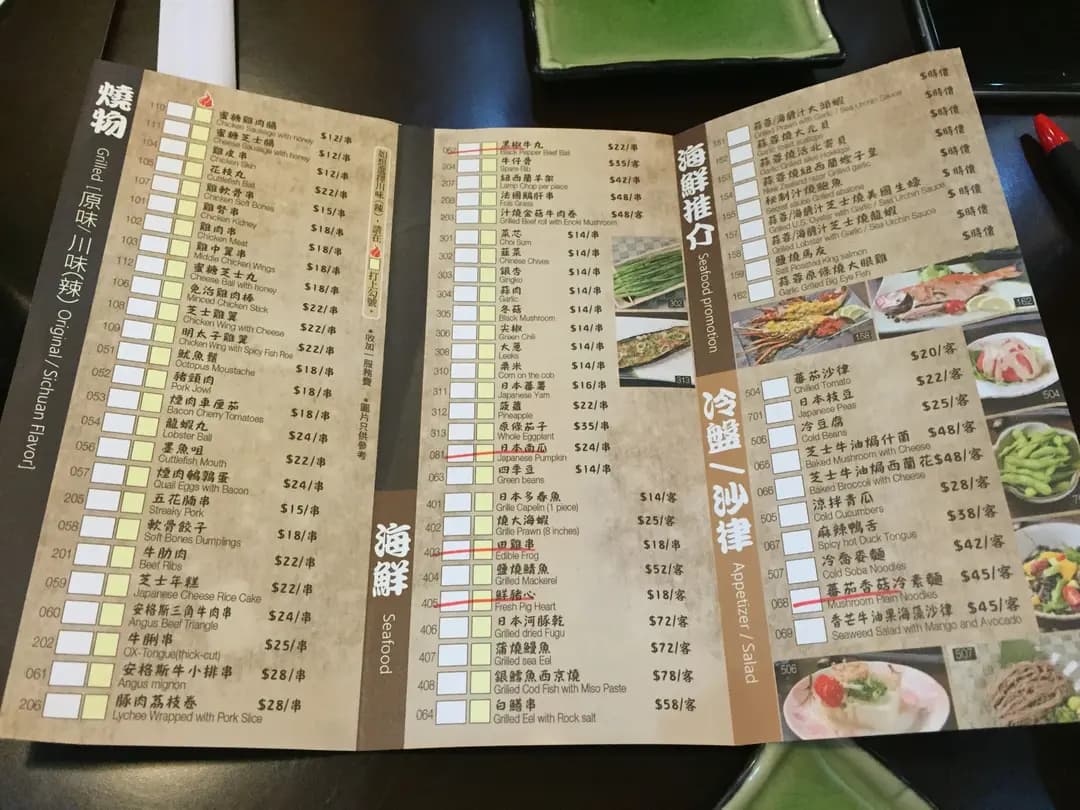 燒物
Grilled [原味/川味(辣) Original / Sichuan Flavor]
110 蜜糖雞肉腸 $12/串
Chicken Sausage with honey
111 蜜糖芝士腸 $12/串
Cheese Sausage with honey
104 雞皮串 $12/串
Chicken Skin
105 花枝丸 $22/串
Cuttlefish Ball
107 雞軟骨串 $15/串
Chicken Soft Bones
101 雞腎串 $18/串
Chicken Kidney
102 雞肉串 $18/串
Chicken Meat
103 雞中翼串 $18/串
Middle Chicken Wings
112 蜜糖芝士丸 $18/串
Cheese Ball with honey
106 免治雞肉棒 $22/串
Minced Chicken Stick
108 芝士雞翼 $22/串
Chicken Wing with Cheese
109 明太子雞翼 $22/串
Chicken Wing with Spicy Fish Roe
051 魷魚鬚 $18/串
Octopus Moustache
052 豬頸肉 $18/串
Pork Jowl
053 煙肉車厘茄 $18/串
Bacon Cherry Tomatoes
054 龍蝦丸 $24/串
Lobster Ball
056 墨魚咀 $22/串
Cuttlefish Mouth
057 煙肉鵪鶉蛋 $24/串
Quail Eggs with Bacon
205 五花腩串 $15/串
Streaky Pork
058 軟骨餃子 $18/串
Soft Bones Dumplings
201 牛肋肉 $22/串
Beef Ribs
059 芝士年糕 $22/串
Japanese Cheese Rice Cake
060 安格斯三角牛肉串 $24/串
Angus Beef Triangle
202 牛脷串 $25/串
OX-Tongue(thick-cut)
061 安格斯牛小排串 $28/串
Angus mignon
206 豚肉荔枝卷 $28/串
Lychee Wrapped with Pork Slice
打上勾號。
*收加一服務費
*圖片只供參考
黑椒牛丸 $22/串
Black Pepper Beef Ball
204 牛仔骨 $35/串
Spare Rib
207 紐西蘭羊架 $42/串
Lamp Chop per piece
208 法國鵝肝串 $48/串
Fois Grass
203 汁燒金菇牛肉卷 $48/客
Grilled Beef roll with Enoki Mushroom
301 菜芯 $14/串
Choi Sum
302 韮菜 $14/串
Chinese Chives
303 銀杏 $14/串
Gingko
304 蒜肉 $14/串
Garlic
305 冬菇 $14/串
Black Mushroom
306 尖椒 $14/串
Green Chili
308 大蔥 $14/串
Leeks
310 粟米 $14/串
Corn on the cob
311 日本蕃薯 $16/串
Japanese Yam
312 菠蘿 $22/串
Pineapple
313 原條茄子 $35/串
Whole Eggplant
081 日本南瓜 $24/串
Japanese Pumpkin
063 四季豆 $14/串
Green beans
302
313
海鮮
Seafood
401 日本多春魚 $14/客
Grille Capelin (1 piece)
402 燒大海蝦 $25/客
Grille Prawn (8 inches)
403 田雞串 $18/串
Edible Frog
404 鹽燒鯖魚 $52/客
Grilled Mackerel
405 鮮豬心 $18/客
Fresh Pig Heart
406 日本河豚乾 $72/客
Grilled dried Fugu
407 蒲燒鰻魚 $72/客
Grilled sea Eel
408 銀鱈魚西京燒 $78/客
Grilled Cod Fish with Miso Paste
064 白鱔串 $58/客
Grilled Eel with Rock salt
海鮮推介
Seafood promotion
151 蒜蓉/海膽汁大頭蝦 $時價
Grilled Prawn with Garlic / Sea Urchin Sauce
蒜蓉燒大元貝 $時價
蒜蓉燒活北寄貝 $時價
154 蒜蓉燒紐西蘭蟶子皇 $時價
New Zealand razor Grilled garlic
秘制汁燒鮑魚 $時價
蒜蓉/海膽汁芝士燒美國生蠔 $時價
Grilled U.S. Oyster with Garlic / Sea Urchin Sauce
157 蒜蓉/海膽汁芝士燒龍蝦 $時價
Grilled Lobster with Garlic / Sea Urchin Sauce
159 鹽燒馬友 $時價
Salt Roasted King salmon
162 蒜蓉原條燒大眼雞
Garlic Grilled Big Eye Fish
158
162
冷盤/沙律
Appetizer / Salad
504 蕃茄沙律 $20/客
Chilled Tomato
701 日本枝豆 $22/客
Japanese Peas
506 冷豆腐 $25/客
Cold Beans
065 芝士牛油焗什菌 $48/客
Baked Mushroom with Cheese
066 芝士牛油焗西蘭花 $48/客
Baked Broccoli with Cheese
505 涼拌青瓜 $28/客
Cold Cucumbers
067 麻辣鴨舌 $38/客
Spicy hot Duck Tongue
507 冷喬麥麵 $42/客
Cold Soba Noodles
068 蕃茄香菇冷素麵 $45/客
Mushroom Plain Noodles
069 香芒牛油果海藻沙律 $45/客
Seaweed Salad with Mango and Avocado
504
506
507